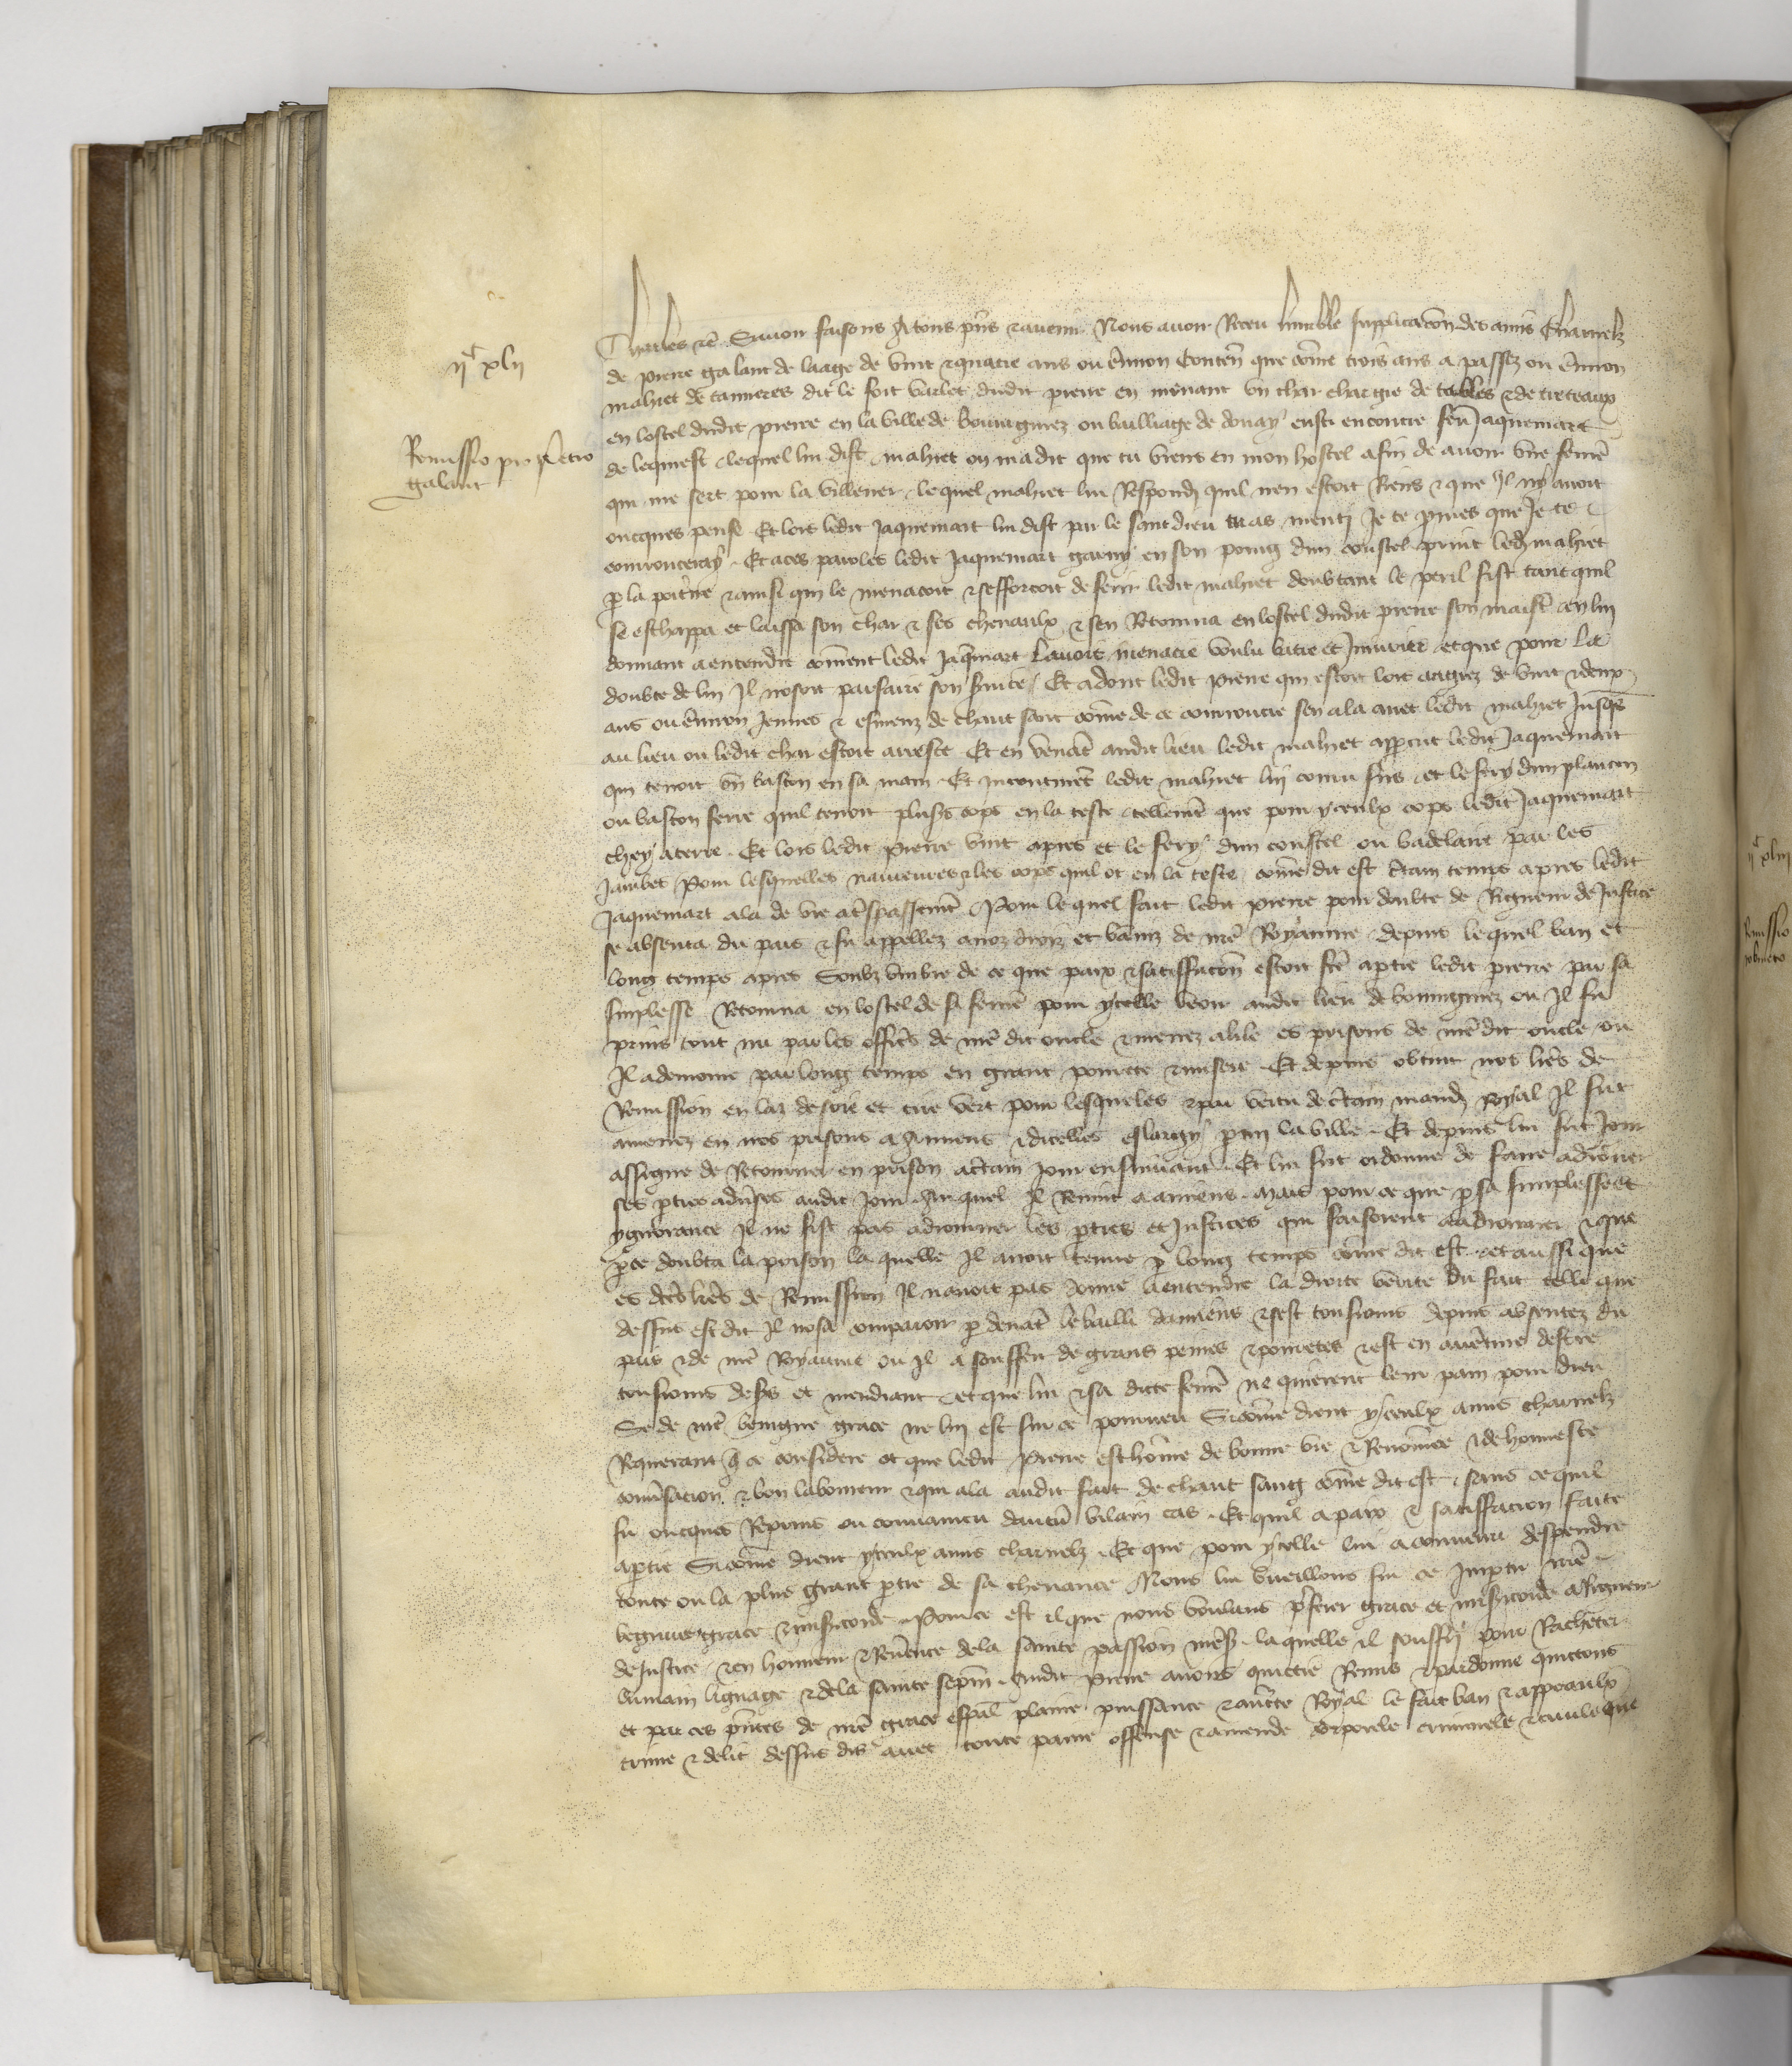 ijc xlij
Remissio pro petro
galant
Charles etc Savoir faisons A tous pñs et avenir Nous avoir Receu humble supplicacõn des amis Charnelz
de pierre galant de laage de vint et quatre ans ou environ Conteñ que cõme trois ans a passez ou environ
mahiet de tanneres dit le fort varlet dudit pierre en menant un char chargie de tables et de treteaux
en lostel dudit pierre en la ville de bouvignies ou bailliage de douay eust encontre feu Jaquemart
de lequest lequel lui dist mahiet on ma dit que tu viens en mon hostel afin de avoir une feme
qui me sert pour la villener lequel mahiet lui Respondi quil nen estoit Riens et que Il ny avoit
oncques pense Et lors ledit Jaquemart lui dist par le sanc dieu tu as menti Je te pmes que Je te
courrouceray Et a ces paroles ledit Jaquemart garny en son poing dun coustel print led mahiet
p la poitrine et ainsi qui le menacoit et sefforcoit de ferir ledit mahiet doubtant le peril fist tant quil
se eschappa et laissa son char et ses chevaulx et sen Retourna en lostel dudit pierre son maistre en lui
donnant a entendre coment ledit Jaqmart lavoit menacie voulu batre et Iniurier et que pour la
doubte de lui Il nosoit parfaire son service Et adont ledit pierre qui estoit lors aagiez de vint et deux
ans ou environ Jeunes et esmeuz de chaut sanc cõme de ce courroucie sen ala avec ledit mahiet Jusqs
au lieu ou ledit char estoit arreste Et en venant audit lieu ledit mahiet appercut ledit Jaquemart
qui tenoit un baston en sa main Et incontinent ledit mahiet lui couru sus et le fery dun plancon
ou baston ferre quil tenoit plus's cops en la teste tellement que pour yceulx cops ledit Jaquemart
chey a terre Et lors ledit pierre vint apres et le fery dun coustel ou badelaire par les
Jambes Pour lesquelles navreures et les cops quil ot en la teste cõme dit est certain temps apres ledit
Jaquemart ala de vie a trespassement Pour lequel fait ledit pierre pour doubte de Rigueur de Justice
se absenta du pais et fu appellez a noz drois et baniz de nre Royaume depuis lequel ban et
long temps apres Soubz umbre de ce que paix et satisfacon estoit fte a ptie ledit pierre par sa
simplesse Retourna en lostel de sa feme pour ycelle veoir audit lieu de bouvignies ou Il fu
prins tout nu par les offics de nre dit oncle et menez a lile es prisons de nre dit oncle ou
Il a demoure par long temps en grant povrete et misere Et depuis obtint nos lres de
Remission en laz de soie et cire vert pour lesqueles et par vertu de certain mand Royal Il fut
amenez en nos prisons a Amiens et dicelles eslargy p my la ville Et depuis lui fut Jour
assigne de Retourner en prison a certain Jour ensuivant Et lui fut ordonne de faire adiourner
ses pties advses audit Jour Auquel Il Revint a amiens Mais pour ce que p sa simplesse et
ygnorance Il ne fist pas adiourner les pties et Justices qui faisoient a adiourner et que
p ce doubta la prison la quelle Il avoit tenue p long temps cõme dit est et aussi que
es dtes lres de Remission Il navoit pas donne a entendre la droite verite du fait telle que
dessus est dit Il nosa comparoir p devant le bailli damiens et sest tousiours depuis absentez du
pais et de nre Royaume ou Il a souffert de grans peines et povretes et est en aventure destre
tousiours desers et mendiant et que lui et sa dicte feme ne quierent leur pain pour dieu
Se de nre benigne grace ne lui est sur ce pourveu Si cõme dient yceulx amis charnelz
Requerant q ce considere et que ledit Pierre est home de bonne vie et Renomee et de honneste
conversation et bon laboureur et qui ala audit fait de chaut sang cõme dit est sans ce quil
fu oncques Reprins ou convaincu dautre vilain cas Et quil a paix et satisfacion faite
a ptie Si cõme dient yceulx amis charnelz Et que pour ycelle lui a convenu despendre
toute ou la plus grant ptie de sa chevance Nous lui vueillons sur ce Impartir nre
benigne grace et misericorde Pour ce est il que nous voulans preferer grace et misericorde a Rigueur
de Justice et en honneur et Reverence de la sainte passion nres la quelle il souffry pour Racheter
lumain lignage et de la sainte sepm audit Pierre avons quictie Remis et pardonne quictons
et par ces pntes de nre grace espal plaine puissance et aucte Royal le fait ban et appeaulx
crime et delit dessus dis avec toute paine offense et amende corporele criminele et civile que
ijc xliij
Remissio